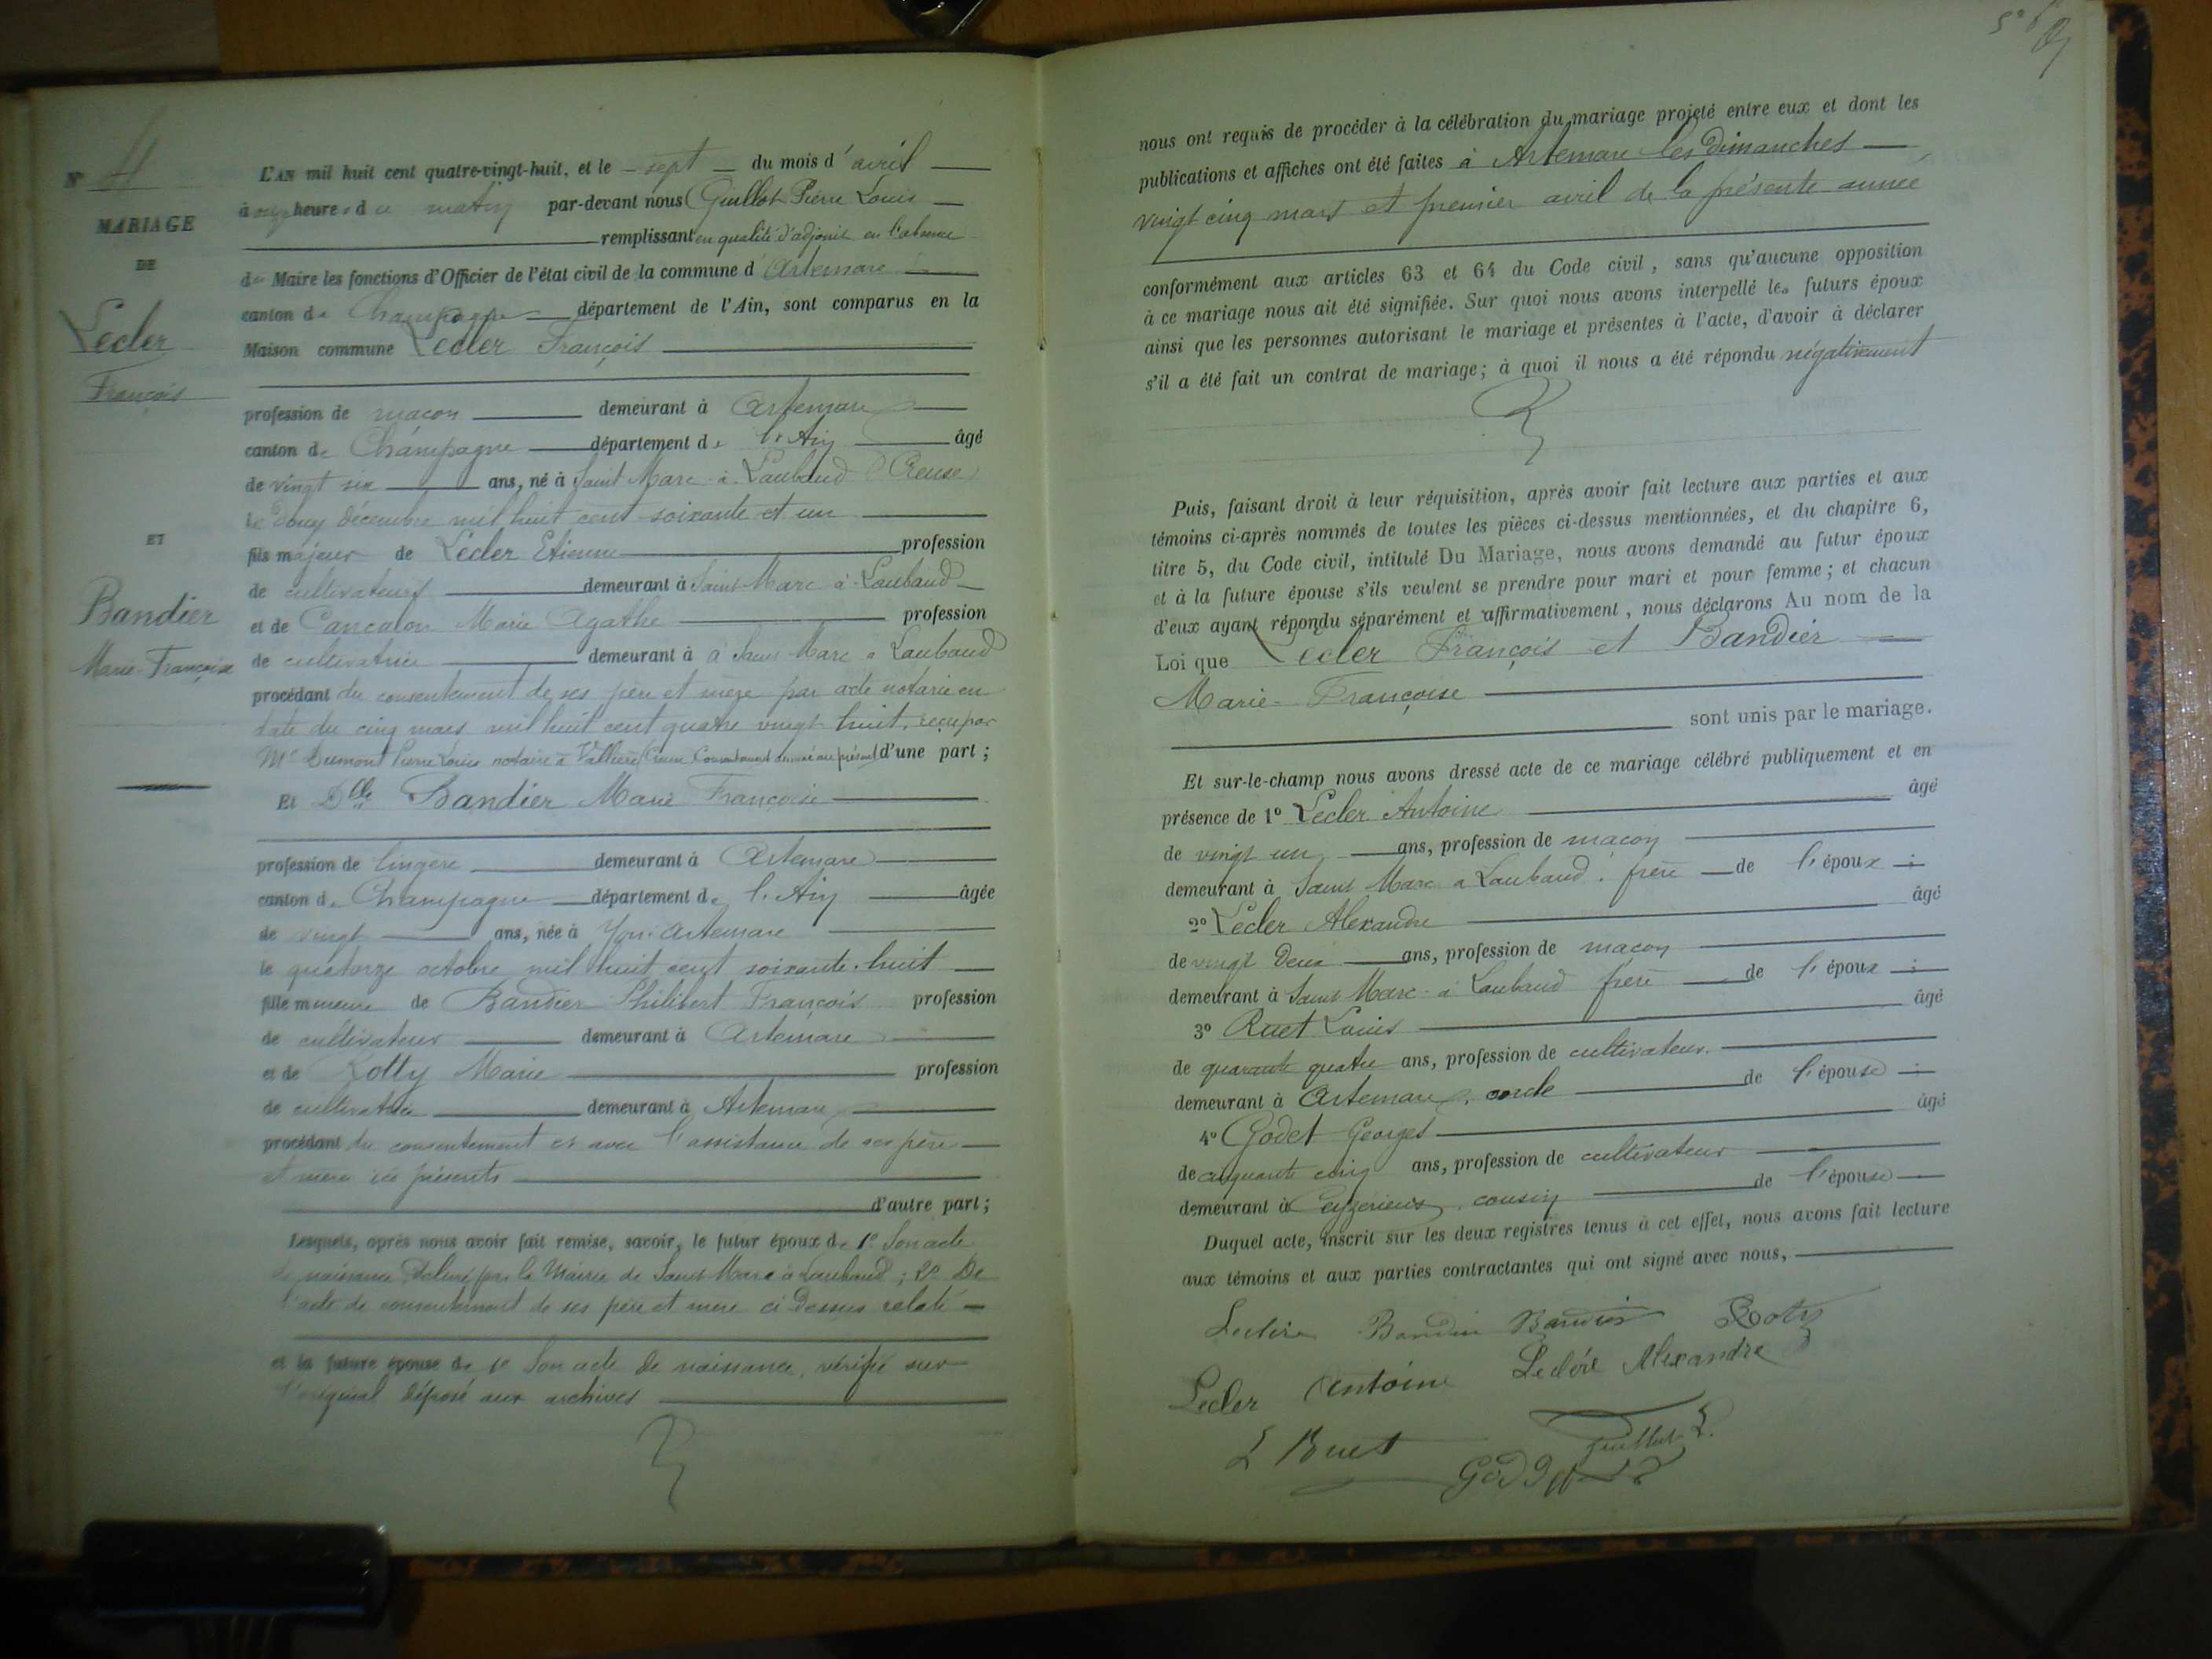 N° 4
MARIAGE
DE
Lecler
François
ET
Bandier
Marie-Françoise
L'AN mil huit cent quatre-vingt-huit, et le sept du mois d'avril
à heures du matin par-devant nous Guillot Pierre Louis
remplissant en qualité d'adjoint en l'absence
du Maire les fonctions d'Officier de l'état civil de la commune d'Artemare
canton de Champagne département de l'Ain, sont comparus en la
Maison commune Lecler François
profession de maçon demeurant à Artemare
canton de Champagne département de l'Ain âgé
de vingt six ans, né à Saint Marc à Loubaud (Creuse)
le douze décembre mil huit cent soixante et un
fils majeur de Lecler Etienne profession
de cultivateur demeurant à Saint Marc à Loubaud
et de Cancalon Marie Agathe profession
de cultivatrice demeurant à à Saint Marc à Loubaud
procédant du consentement de ses père et mère par acte notarié en
date du cinq mars mil huit cent quatre vingt huit, reçu par
Me Dumont Pierre Louis notaire à Vallière Creuse d'une part ;
Et Dlle Bandier Marie Françoise
profession de lingère demeurant à Artemare
canton de Champagne département de l'Ain âgée
de vingt ans, née à Yon-Artemare
le quatorze octobre mil huit cent soixante-huit
fille mineure de Bandier Philibert François profession
de cultivateur demeurant à Artemare
et de Rotty Marie profession
de cultivatrice demeurant à Artemare
procédant du consentement et avec l'assistance de ses père
et mère ici présents
d'autre part ;
Lesquels, après nous avoir fait remise, savoir, le futur époux de 1° Son acte
de naissance délivré par la Mairie de Saint Marc à Loubaud ; 2° De
l'acte de consentement de ses père et mère ci dessus relaté
et la future épouse de 1° Son acte de naissance, vérifié sur
l'original déposé aux archives
nous ont requis de procéder à la célébration du mariage projeté entre eux et dont les
publications et affiches ont été faites à Artemare les dimanches
vingt cinq mars et premier avril de la présente année
conformément aux articles 63 et 64 du Code civil, sans qu'aucune opposition
à ce mariage nous ait été signifiée. Sur quoi nous avons interpellé les futurs époux
ainsi que les personnes autorisant le mariage et présentes à l'acte, d'avoir à déclarer
s'il a été fait un contrat de mariage ; à quoi il nous a été répondu négativement
Puis, faisant droit à leur réquisition, après avoir fait lecture aux parties et aux
témoins ci-après nommés de toutes les pièces ci-dessus mentionnées, et du chapitre 6,
titre 5, du Code civil, intitulé Du Mariage, nous avons demandé au futur époux
et à la future épouse s'ils veulent se prendre pour mari et pour femme ; et chacun
d'eux ayant répondu séparément et affirmativement, nous déclarons Au nom de la
Loi que Lecler François et Bandier
Marie-Françoise
sont unis par le mariage.
Et sur-le-champ nous avons dressé acte de ce mariage célébré publiquement et en
présence de 1° Lecler Antoine âgé
de vingt un ans, profession de maçon
demeurant à Saint Marc à Loubaud, frère de l'époux ;
2° Lecler Alexandre âgé
de vingt deux ans, profession de maçon
demeurant à Saint Marc à Loubaud frère de l'époux ;
3° Ruet Louis âgé
de quarante quatre ans, profession de cultivateur
demeurant à Artemare, oncle de l'épouse ;
4° Godet Georges âgé
de cinquante cinq ans, profession de cultivateur
demeurant à Ceyzérieux, cousin de l'épouse
Duquel acte, inscrit sur les deux registres tenus à cet effet, nous avons fait lecture
aux témoins et aux parties contractantes qui ont signé avec nous,
Bandier
Lecler Antoine Leclére Alexandre
L Ruet
Guillot L.